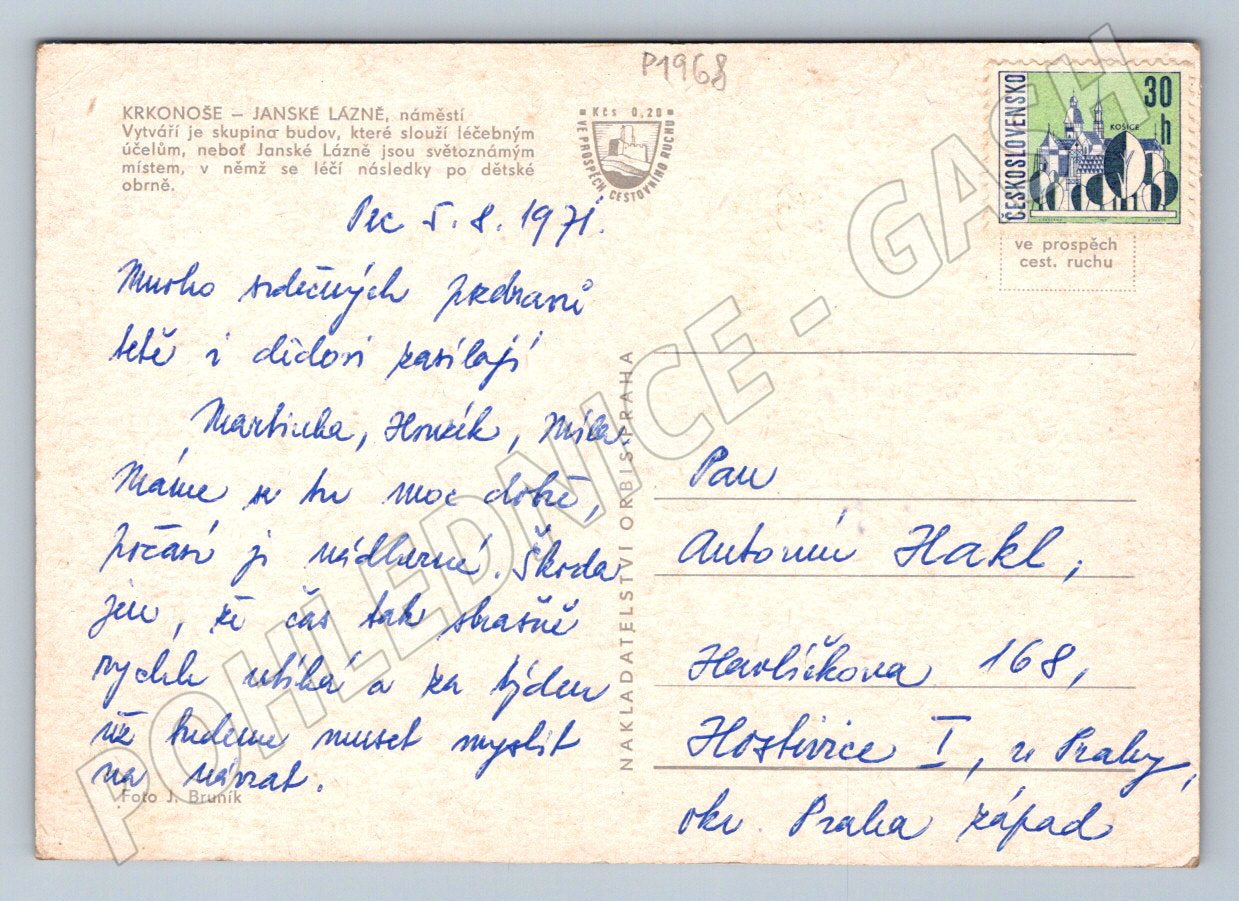 P1968
KRKONOŠE – JANSKÉ LÁZNĚ, náměstí
Vytváří je skupina budov, které slouží léčebným
účelům, neboť Janské Lázně jsou světoznámým
místem, v němž se léčí následky po dětské
obrně.
Kčs 0,20
VE PROSPĚCH CESTOVNÍHO RUCHU
ČESKOSLOVENSKO
30 h
KOŠICE
ve prospěch
cest. ruchu
Pec 5. 8. 1971.
Mnoho srdečných pozdravů
tetě i dědovi zasílají
Martinka, Honzík, Míla.
Máme se tu moc dobře,
počasí je nádherné. Škoda
jen, že čas tak strašně
rychle utíká a za týden
už budeme muset myslit
na návrat.
Foto J. Bruník
NAKLADATELSTVÍ ORBIS PRAHA
Pan
Antonín Hakl,
Havlíčkova 168,
Hostivice I, u Prahy,
okr. Praha západ
POHLEDNICE - GASH